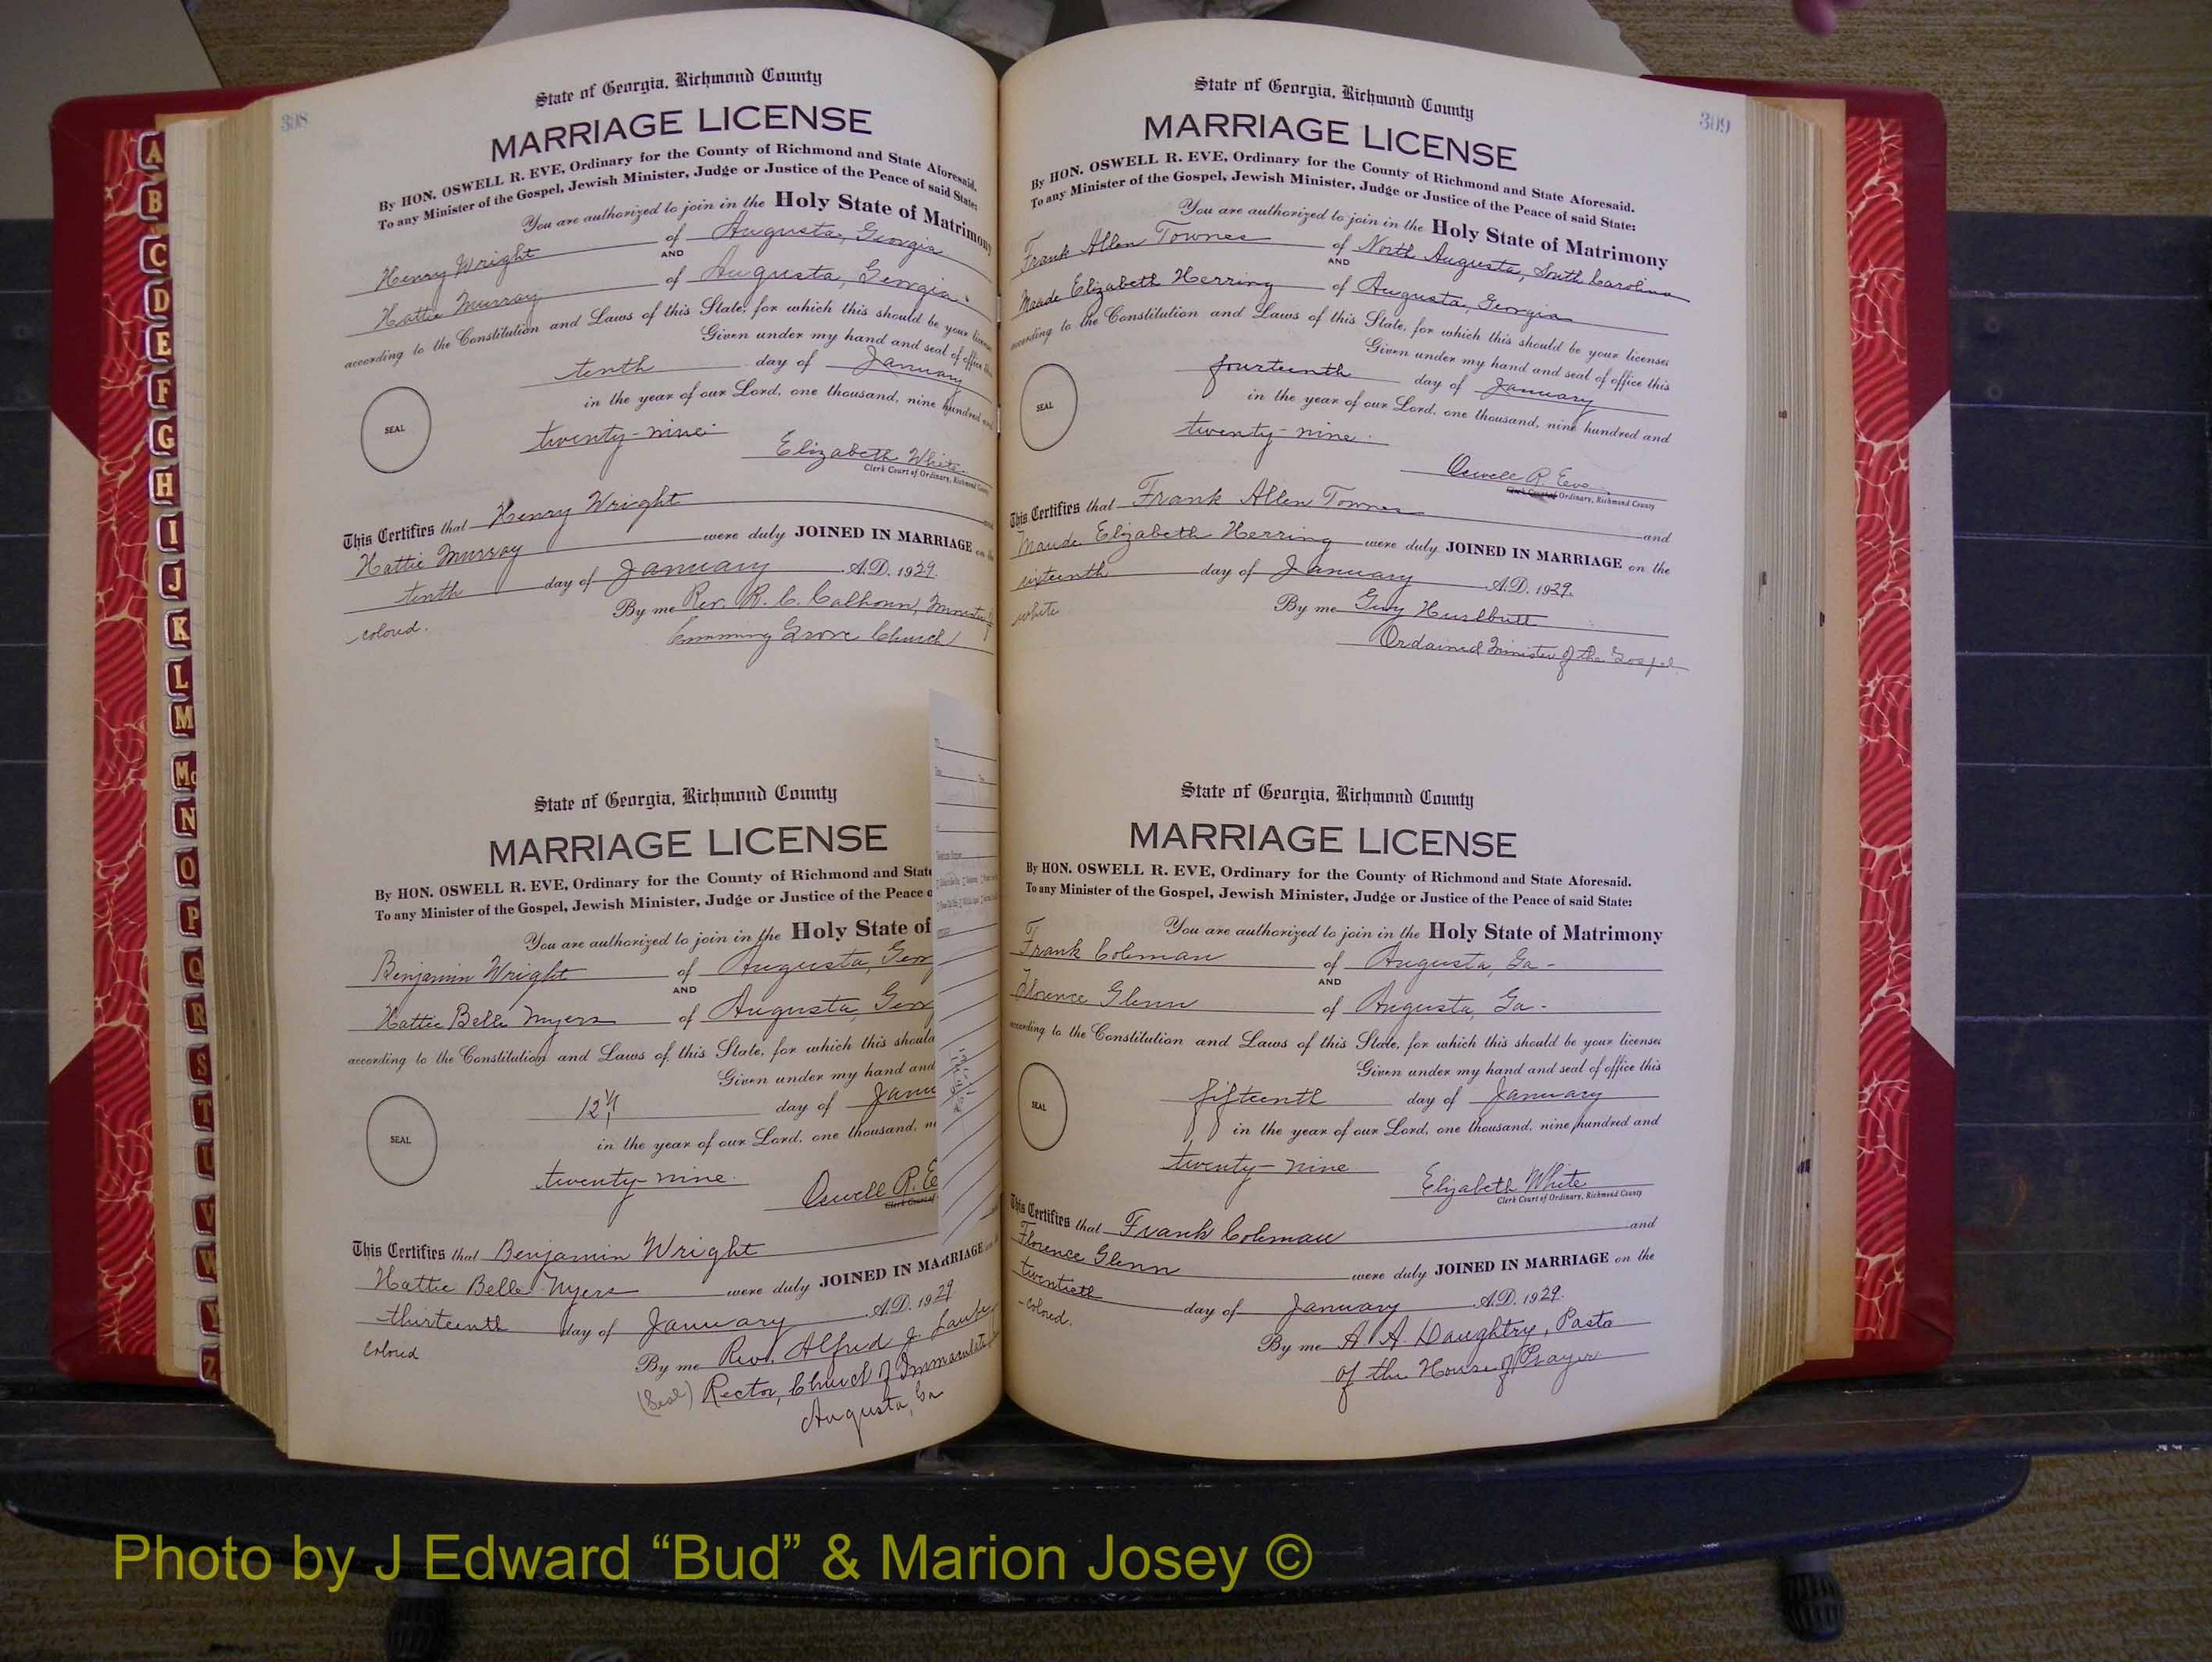 308
State of Georgia, Richmond County
MARRIAGE LICENSE
By HON. OSWELL R. EVE, Ordinary for the County of Richmond and State Aforesaid.
To any Minister of the Gospel, Jewish Minister, Judge or Justice of the Peace of said State:
You are authorized to join in the Holy State of Matrimony
Henry Wright of Augusta, Georgia
AND
Hattie Murray of Augusta, Georgia.
according to the Constitution and Laws of this State, for which this should be your license
Given under my hand and seal of office this
tenth day of January
in the year of our Lord, one thousand, nine hundred and
SEAL
twenty-nine.
Elizabeth White
Clerk Court of Ordinary, Richmond County
This Certifies that Henry Wright and
Hattie Murray were duly JOINED IN MARRIAGE on the
tenth day of January A.D. 1929.
colored.
By me Rev. R. C. Calhoun, Minister
Cumming Grove Church
State of Georgia, Richmond County
MARRIAGE LICENSE
By HON. OSWELL R. EVE, Ordinary for the County of Richmond and State
To any Minister of the Gospel, Jewish Minister, Judge or Justice of the Peace o
You are authorized to join in the Holy State of
Benjamin Wright of Augusta, Geor
AND
Hattie Belle Myers of Augusta, Geor
according to the Constitution and Laws of this State, for which this should
Given under my hand and
12th day of Janu
in the year of our Lord, one thousand, n
SEAL
twenty-nine.
Oswell R. E
Clerk Court of
This Certifies that Benjamin Wright
Hattie Belle Myers were duly JOINED IN MARRIAGE
thirteenth day of January A.D. 1929
Colored
By me Rev. Alfred J.
(Seal) Rector, Church of Immaculate
Augusta, Ga
309
State of Georgia, Richmond County
MARRIAGE LICENSE
By HON. OSWELL R. EVE, Ordinary for the County of Richmond and State Aforesaid.
To any Minister of the Gospel, Jewish Minister, Judge or Justice of the Peace of said State:
You are authorized to join in the Holy State of Matrimony
Frank Allen Townes of North Augusta, South Carolina
AND
Maude Elizabeth Herring of Augusta, Georgia
according to the Constitution and Laws of this State, for which this should be your license;
Given under my hand and seal of office this
fourteenth day of January
in the year of our Lord, one thousand, nine hundred and
SEAL
twenty-nine.
Oswell R. Eve
Clerk Court of Ordinary, Richmond County
This Certifies that Frank Allen Townes and
Maude Elizabeth Herring were duly JOINED IN MARRIAGE on the
sixteenth day of January A.D. 1929.
white
By me Guy Hurlbutt
Ordained Minister of the Gospel
State of Georgia, Richmond County
MARRIAGE LICENSE
By HON. OSWELL R. EVE, Ordinary for the County of Richmond and State Aforesaid.
To any Minister of the Gospel, Jewish Minister, Judge or Justice of the Peace of said State:
You are authorized to join in the Holy State of Matrimony
Frank Coleman of Augusta, Ga-
AND
Florence Glenn of Augusta, Ga-
according to the Constitution and Laws of this State, for which this should be your license;
Given under my hand and seal of office this
fifteenth day of January
in the year of our Lord, one thousand, nine hundred and
SEAL
twenty-nine
Elizabeth White
Clerk Court of Ordinary, Richmond County
This Certifies that Frank Coleman and
Florence Glenn were duly JOINED IN MARRIAGE on the
twentieth day of January A.D. 1929.
-colored.
By me A. A. Daughtry, Pasto
of the House of Prayer
A
B
C
D
E
F
G
H
I
J
K
L
M
Mc
N
O
P
Q
R
S
T
U
V
W
Y
Z
Photo by J Edward “Bud” & Marion Josey ©